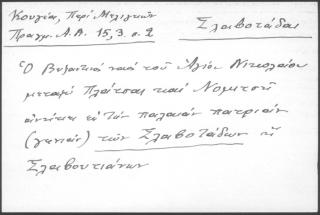 Κουγέα, Περὶ Μελιγγῶν
Πραγμ. Α.Α. 15, 3. σ. 2
Σλαβοτάδαι
Ὁ Βυζαντινὸς ναὸς τοῦ Ἁγίου Νικολάου
μεταξὺ Πλάτσας καὶ Νομιτσῆ
ἀνήκει εἰς τὴν παλαιὰν πατριὰν
(γενεὰν) τῶν Σλαβοτάδων ἢ
Σλαβουτιάνων